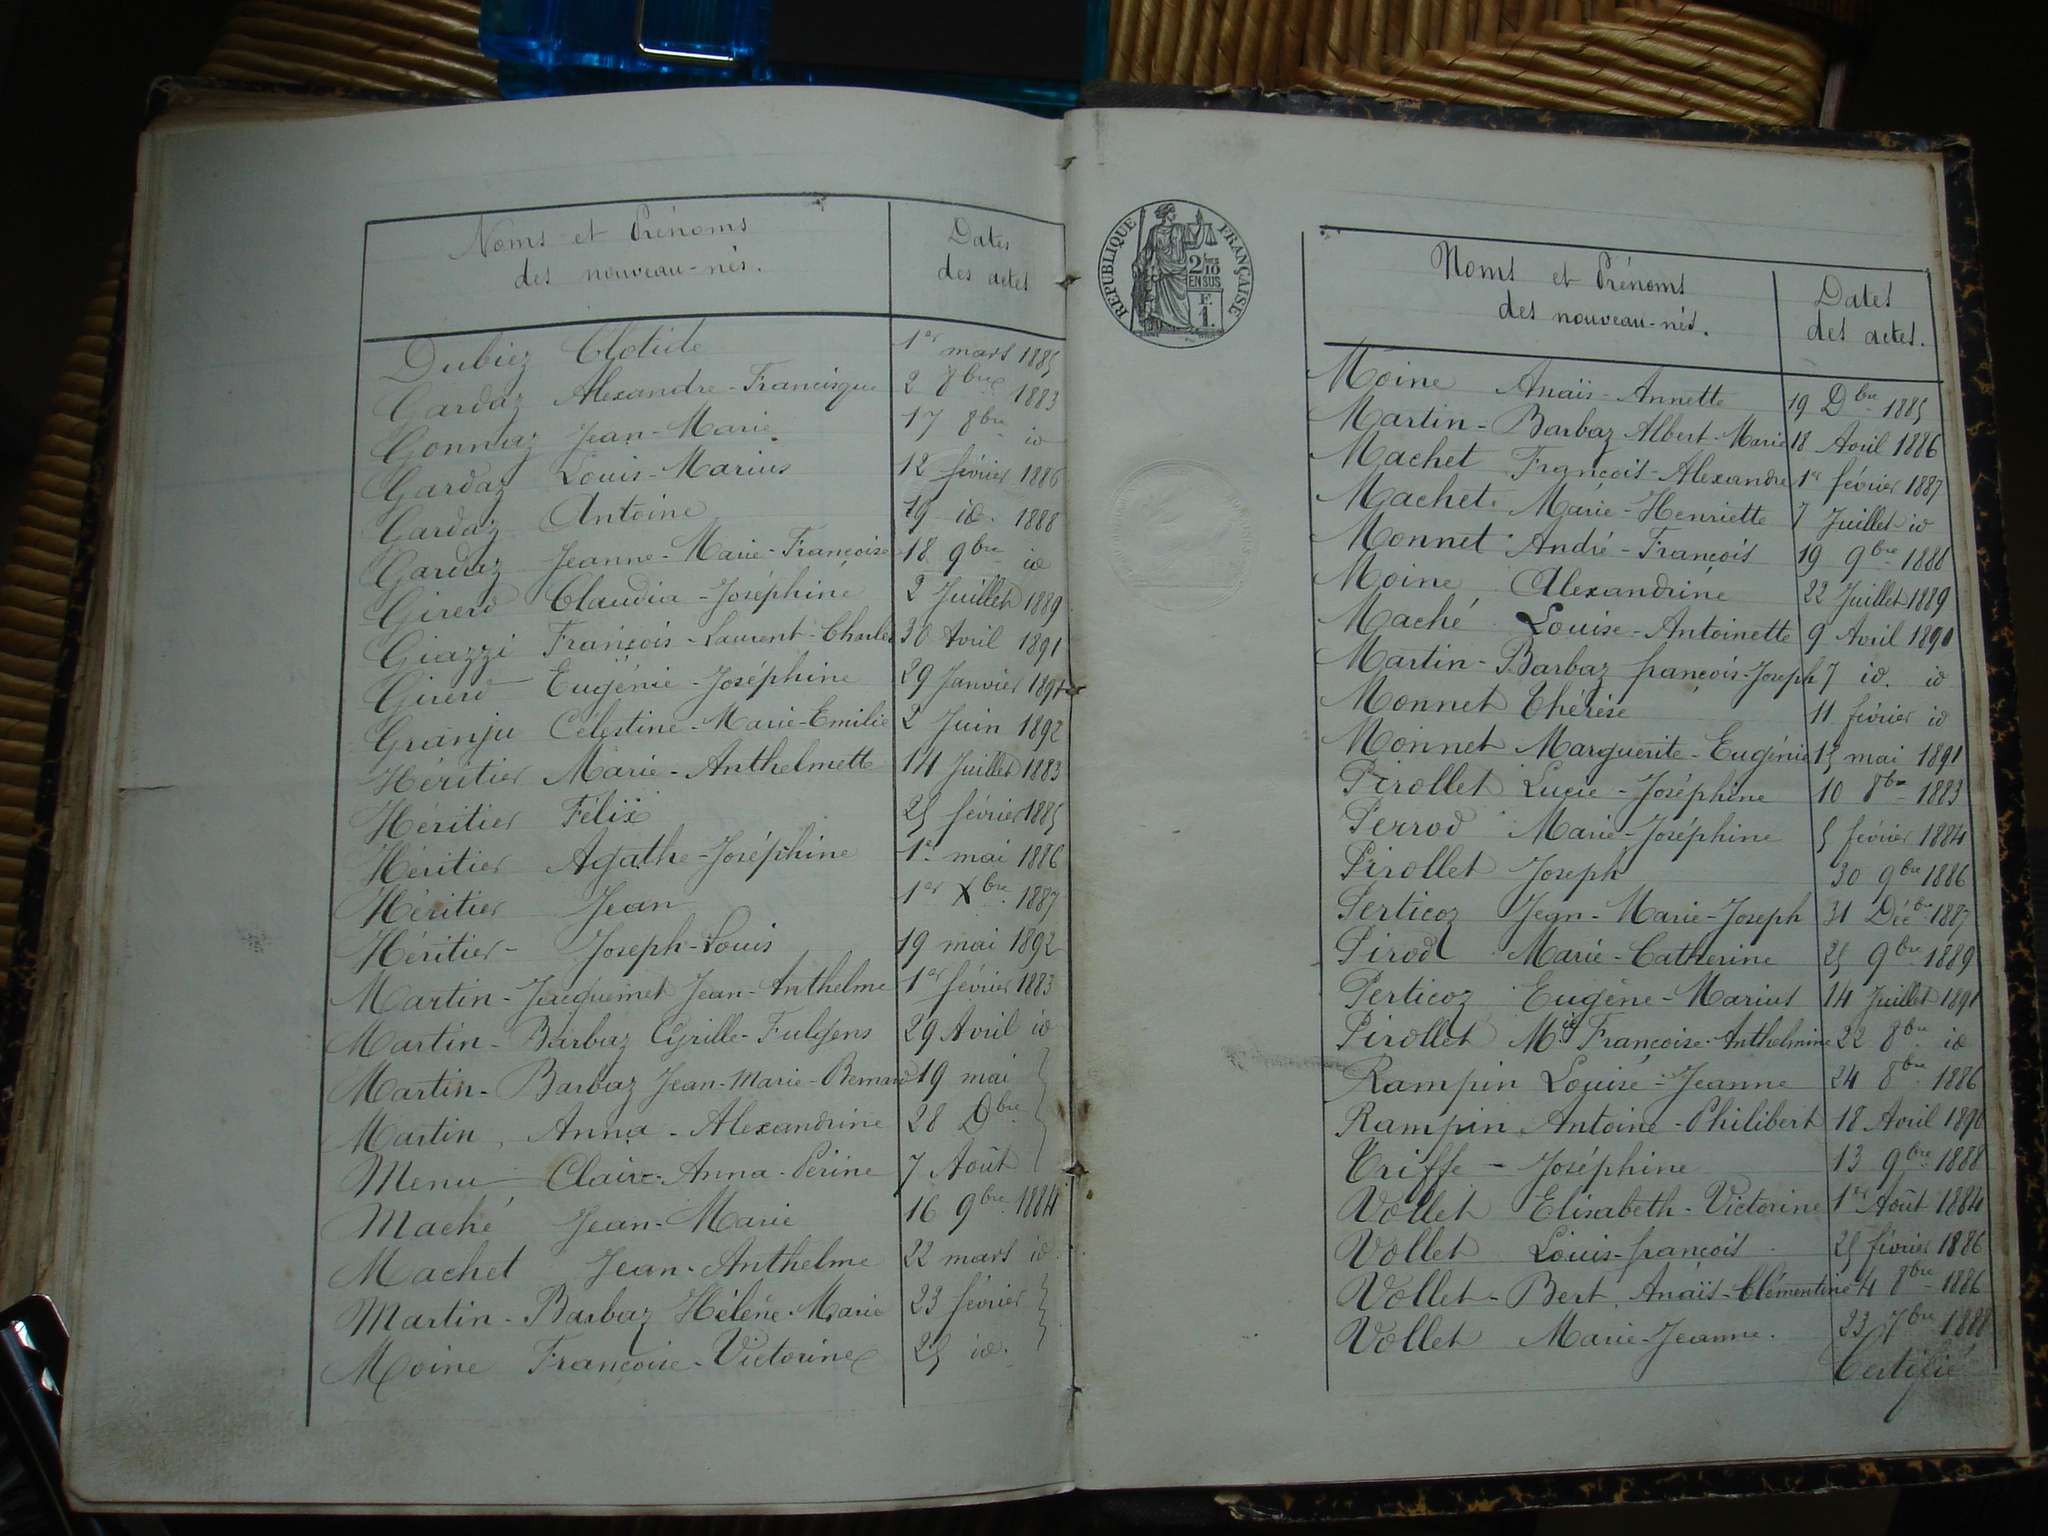 Noms et Prénoms
des nouveau-nés.
Dates
des actes
Dubiez Clotilde 1er mars 1885
Gardaz Alexandre-Francisque 2 8bre 1883
Gonnaz Jean-Marie 17 8bre id
Gardaz Louis-Marius 12 février 1886
Gardaz Antoine 19 id. 1888
Gardaz Jeanne-Marie-Françoise 18 9bre id
Girerd Claudia-Joséphine 2 Juillet 1889
Giazzi François-Laurent-Charles 30 Avril 1891
Girerd Eugénie-Joséphine 29 Janvier 1891
Granju Célestine-Marie-Emilie 2 Juin 1892
Héritier Marie-Anthelmette 14 Juillet 1883
Héritier Félix 25 février 1885
Héritier Agathe-Joséphine 1er mai 1886
Héritier Jean 1er Xbre 1887
Héritier- Joseph-Louis 19 mai 1892
Martin-Jacquemet Jean-Anthelme 1er février 1883
Martin-Barbaz Cyrille-Fulgens 29 Avril id
Martin-Barbaz Jean-Marie-Bernard 19 mai
Martin, Anna-Alexandrine 28 Dbre
Menu Claire-Anna-Périne 7 Août
Maché Jean-Marie 16 9bre 1884
Machet Jean-Anthelme 22 mars id.
Martin-Barbaz Hélène-Marie 23 février
Moine Françoise-Victorine 25 id.
REPUBLIQUE FRANÇAISE
2/10
EN SUS
F.
1.
Noms et Prénoms
des nouveau-nés.
Dates
des actes.
Moine Anaïs-Annette 19 Dbre 1885
Martin-Barbaz Albert-Marie 18 Avril 1886
Machet François-Alexandre 1er février 1887
Machet Marie-Henriette 7 Juillet id
Monnet André-François 19 9bre 1888
Moine Alexandrine 22 Juillet 1889
Maché Louise-Antoinette 9 Avril 1890
Martin-Barbaz françois-Joseph 7 id. id
Monnet Thérèse 11 février id
Monnet Marguerite-Eugénie 15 mai 1891
Pirollet Lucie-Joséphine 10 8bre 1883
Perrod Marie-Joséphine 5 février 1884
Pirollet Joseph 30 9bre 1886
Perticoz Jean-Marie-Joseph 31 Décbre 1887
Pirod Marie-Catherine 25 9bre 1889
Perticoz Eugène-Marius 14 Juillet 1891
Pirollet Mie Françoise-Anthelmine 22 8bre id
Rampin Louise-Jeanne 24 8bre 1886
Rampin Antoine-Philibert 18 Avril 1890
Triffe - Joséphine 13 9bre 1888
Vollet Elisabeth-Victorine 1er Août 1884
Vollet Louis-françois 25 février 1886
Vollet-Bert Anaïs-Clémentine 4 8bre 1886
Vollet Marie-Jeanne. 23 7bre 1888
Certifié